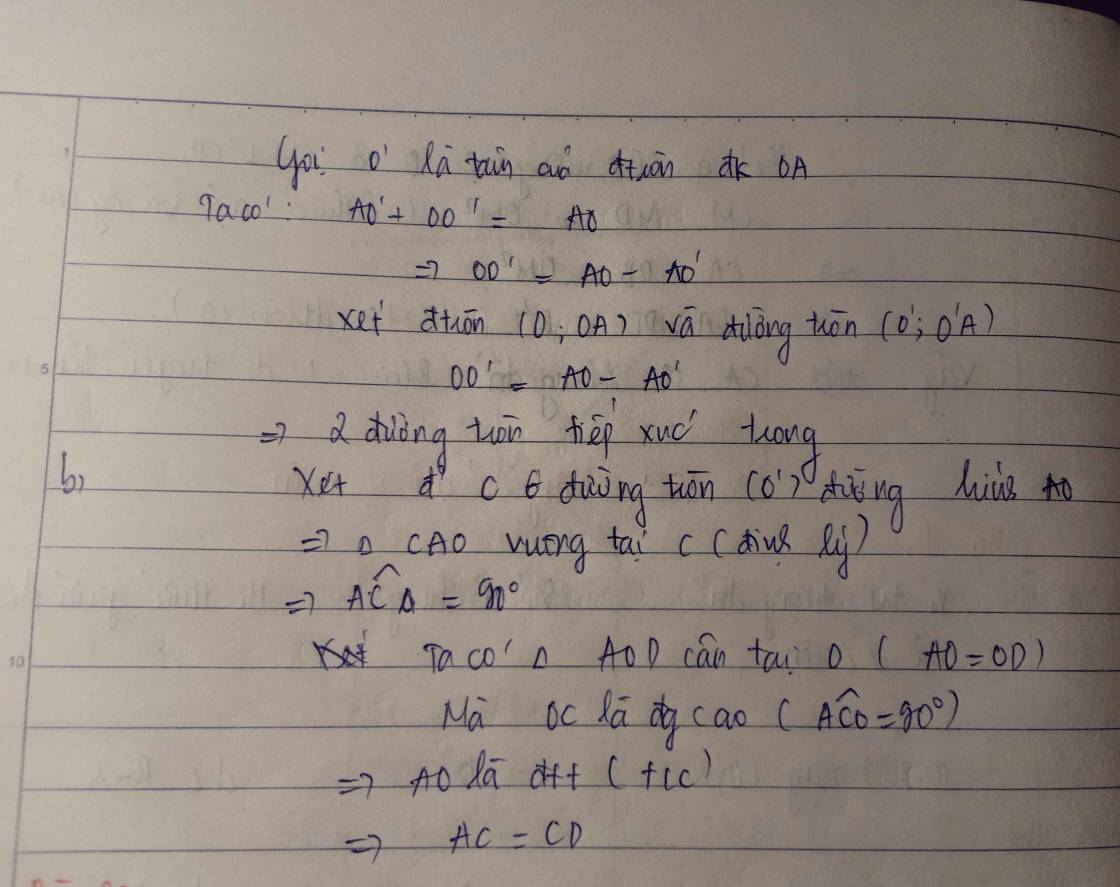 Gọi O' là tâm của đtròn đk OA
Ta có: AO' + OO' = AO
=> OO' = AO - AO'
Xét đtròn (O; OA) và đường tròn (O'; O'A)
OO' = AO - AO'
=> 2 đường tròn tiếp xúc trong
b) Xét đ' C ∈ đường tròn (O') đường kính AO
=> Δ CAO vuông tại C (định lý)
=> AĈΔ = 90°
Ta có Δ AOD cân tại O (AO = OD)
Mà OC là đg cao (AĈO = 90°)
=> AO là đtt (t/c)
=> AC = CD